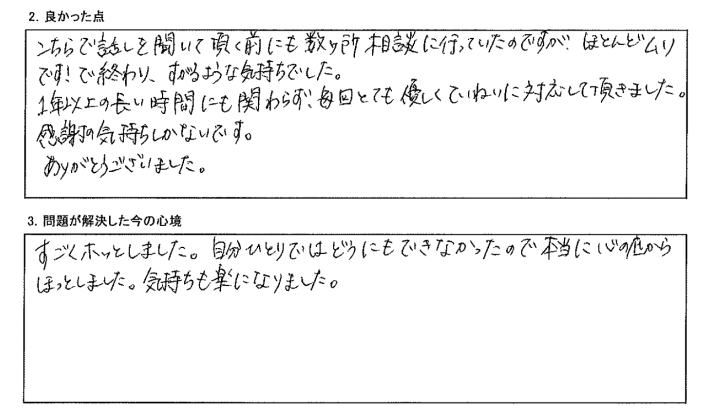 2. 良かった点
こちらで話しを聞いて頂く前にも数ヶ所相談に行っていたのですが、ほとんどムリ
です!で終わり、すがるような気持ちでした。
1年以上の長い時間にも関わらず、毎回とても優しくていねいに対応して頂きました。
感謝の気持ちしかないです。
ありがとうございました。
3. 問題が解決した今の心境
すごくホッとしました。自分ひとりではどうにもできなかったので本当に心の底から
ほっとしました。気持ちも楽になりました。